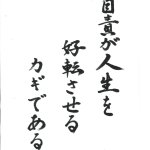 自責が人生を
好転させる
カギである